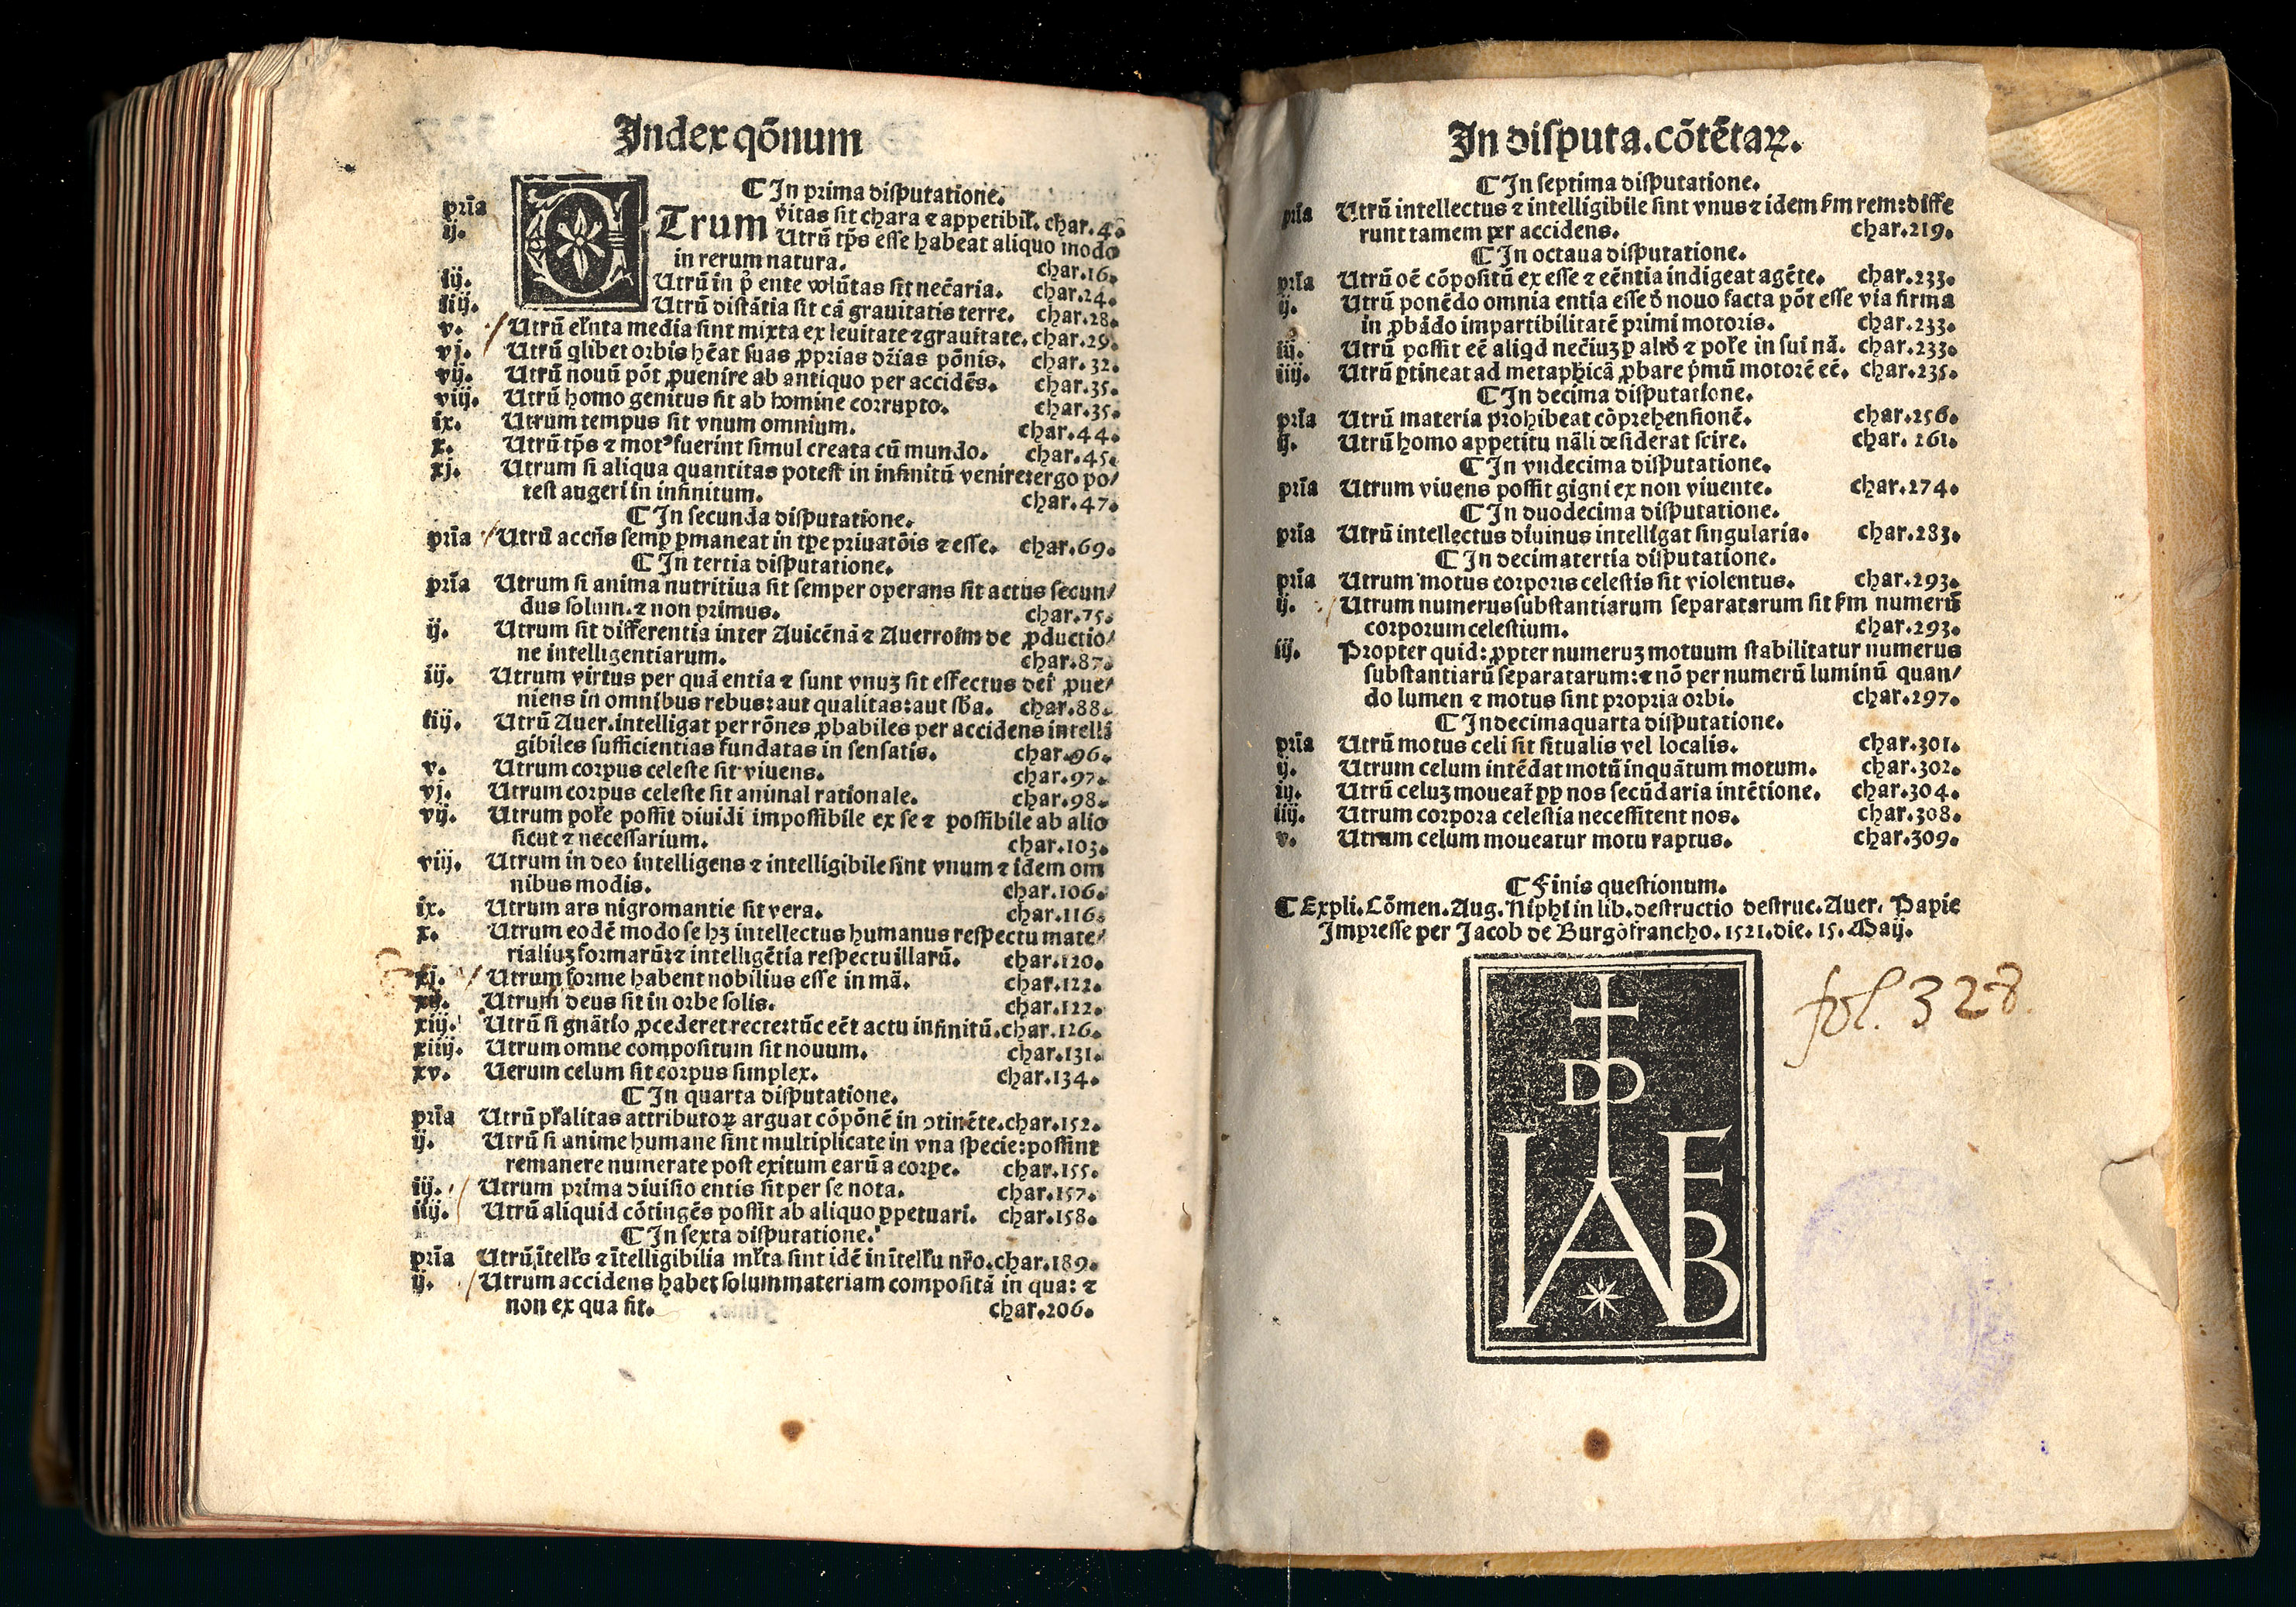 Index qōnum
¶ In prima disputatione.
pr̄ia UTrum v̄itas sit chara ⁊ appetibil̄. char.4.
ij. Utrū tp̄s esse habeat aliquo modo
in rerum natura. char.16.
iij. Utrū in p̄ ente volūtas sit nec̄aria. char.24.
iiij. Utrū distātia sit cā grauitatis terre. char.28.
v. Utrū elm̄ta media sint mixta ex leuitate ⁊ grauitate. char.29.
vj. Utrū qlibet orbis hēat suas ꝓprias dr̄ias pōnis. char.32.
vij. Utrū nouū pōt ꝓuenire ab antiquo per accidēs. char.35.
viij. Utrū homo genitus sit ab homine corrupto. char.35.
ix. Utrum tempus sit vnum omnium. char.44.
x. Utrū tp̄s ⁊ motꝰ fuerint simul creata cū mundo. char.45.
xj. Utrum si aliqua quantitas potest in infinitū venire: ergo po/
test augeri in infinitum. char.47.
¶ In secunda disputatione.
pr̄ia Utrū accn̄s semꝑ ꝑmaneat in tp̄e priuatōis ⁊ esse. char.69.
¶ In tertia disputatione.
pr̄ia Utrum si anima nutritiua sit semper operans sit actus secun/
dus solum. ⁊ non primus. char.75.
ij. Utrum sit differentia inter Auicēnā ⁊ Auerroim de ꝓductio/
ne intelligentiarum. char.87.
iij. Utrum virtus per quā entia ⁊ sunt vnuꝫ sit effectus dei ꝓue/
niens in omnibus rebus: aut qualitas: aut sb̄a. char.88.
iiij. Utrū Auer. intelligat per rōnes ꝓbabiles per accidens intelli
gibiles sufficientias fundatas in sensatis. char.96.
v. Utrum corpus celeste sit viuens. char.97.
vj. Utrum corpus celeste sit animal rationale. char.98.
vij. Utrum pol̄e possit diuidi impossibile ex se ⁊ possibile ab alio
sicut ⁊ necessarium. char.103.
viij. Utrum in deo intelligens ⁊ intelligibile sint vnum ⁊ idem om
nibus modis. char.106.
ix. Utrum ars nigromantie sit vera. char.116.
x. Utrum eodē modo se hꝫ intellectus humanus respectu mate/
rialiuꝫ formarū: ⁊ intelligētia respectu illarū. char.120.
xj. Utrum forme habent nobilius esse in mā. char.122.
xij. Utrum deus sit in orbe solis. char.122.
xiij. Utrū si gnātio ꝓcederet recte: tūc eēt actu infinitū. char.126.
xiiij. Utrum omne compositum sit nouum. char.131.
xv. Uerum celum sit corpus simplex. char.134.
¶ In quarta disputatione.
pr̄ia Utrū pl̄alitas attributoꝝ arguat cōpōnē in ↄtinēte. char.152.
ij. Utrū si anime humane sint multiplicate in vna specie: possint
remanere numerate post exitum earū a corpe. char.155.
iij. Utrum prima diuisio entis sit per se nota. char.157.
iiij. Utrū aliquid cōtingēs possit ab aliquo ꝑpetuari. char.158.
¶ In sexta disputatione.
pr̄ia Utrū ītell̄s ⁊ ītelligibilia ml̄ta sint idē in ītell̄u nr̄o. char.189.
ij. Utrum accidens habet solum materiam compositā in qua: ⁊
non ex qua sit. char.206.
In disputa. cōtētaꝝ.
¶ In septima disputatione.
pr̄ia Utrū intellectus ⁊ intelligibile sint vnus ⁊ idem ẜm rem: diffe
runt tamem per accidens. char.219.
¶ In octaua disputatione.
pr̄ia Utrū oē cōpositū ex esse ⁊ eēntia indigeat agēte. char.233.
ij. Utrū ponēdo omnia entia esse d̄ nouo facta pōt esse via firma
in ꝓbādo impartibilitatē primi motoris. char.233.
iij. Utrū possit eē aliqd nec̄iuꝫ ꝑ altd̄ ⁊ pol̄e in sui nā. char.233.
iiij. Utrū ꝑtineat ad metaphicā ꝓbare p̄mū motorē eē. char.235.
¶ In decima disputatione.
pr̄ia Utrū materia prohibeat cōprehensionē. char.256.
ij. Utrū homo appetitu nāli desiderat scire. char.261.
¶ In vndecima disputatione.
pr̄ia Utrum viuens possit gigni ex non viuente. char.274.
¶ In duodecima disputatione.
pr̄ia Utrū intellectus diuinus intelligat singularia. char.283.
¶ In decimatertia disputatione.
pr̄ia Utrum motus corporis celestis sit violentus. char.293.
ij. Utrum numerus substantiarum separatarum sit ẜm numerū
corporum celestium. char.293.
iij. Propter quid: ꝓpter numeruꝫ motuum stabilitatur numerus
substantiarū separatarum: ⁊ nō per numerū luminū quan/
do lumen ⁊ motus sint propria orbi. char.297.
¶ In decimaquarta disputatione.
pr̄ia Utrū motus celi sit situalis vel localis. char.301.
ij. Utrum celum intēdat motū inquātum motum. char.302.
iij. Utrū celuꝫ moueat̄ ꝓp nos secūdaria intētione. char.304.
iiij. Utrum corpora celestia necessitent nos. char.308.
v. Utrum celum moueatur motu raptus. char.309.
¶ Finis questionum.
¶ Expli. Cōmen. Aug. Niphi in lib. destructio destruc. Auer. Papie
Impresse per Jacob de Burgōfrancho. 1521. die. 15. Maij.
fol. 328.
DD
IAFB